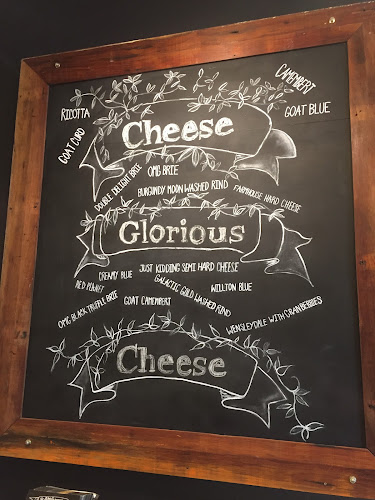 CAMEMBERT
RICOTTA
GOAT BLUE
GOAT CURD
Cheese
DOUBLE DELIGHT BRIE
OMG BRIE
BURGUNDY MOON WASHED RIND
FARMHOUSE HARD CHEESE
Glorious
CREAMY BLUE
JUST KIDDING SEMI HARD CHEESE
RED PLANET
GALACTIC GOLD WASHED RIND
WILLTON BLUE
OMG BLACK TRUFFLE BRIE
GOAT CAMEMBERT
WENSLEYDALE WITH CRANBERRIES
Cheese